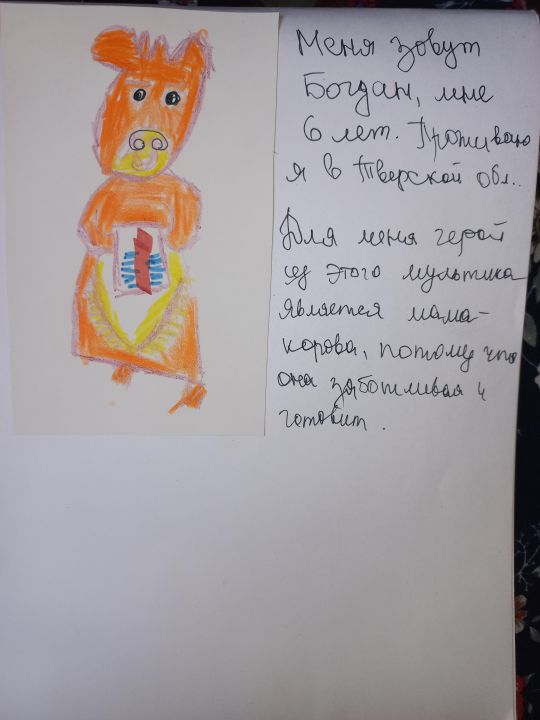 Меня зовут
Богдан, мне
6 лет. Проживаю
я в Тверской обл..
Для меня герой
из этого мультика
является мама-
корова, потому что
она заботливая и
готовит.